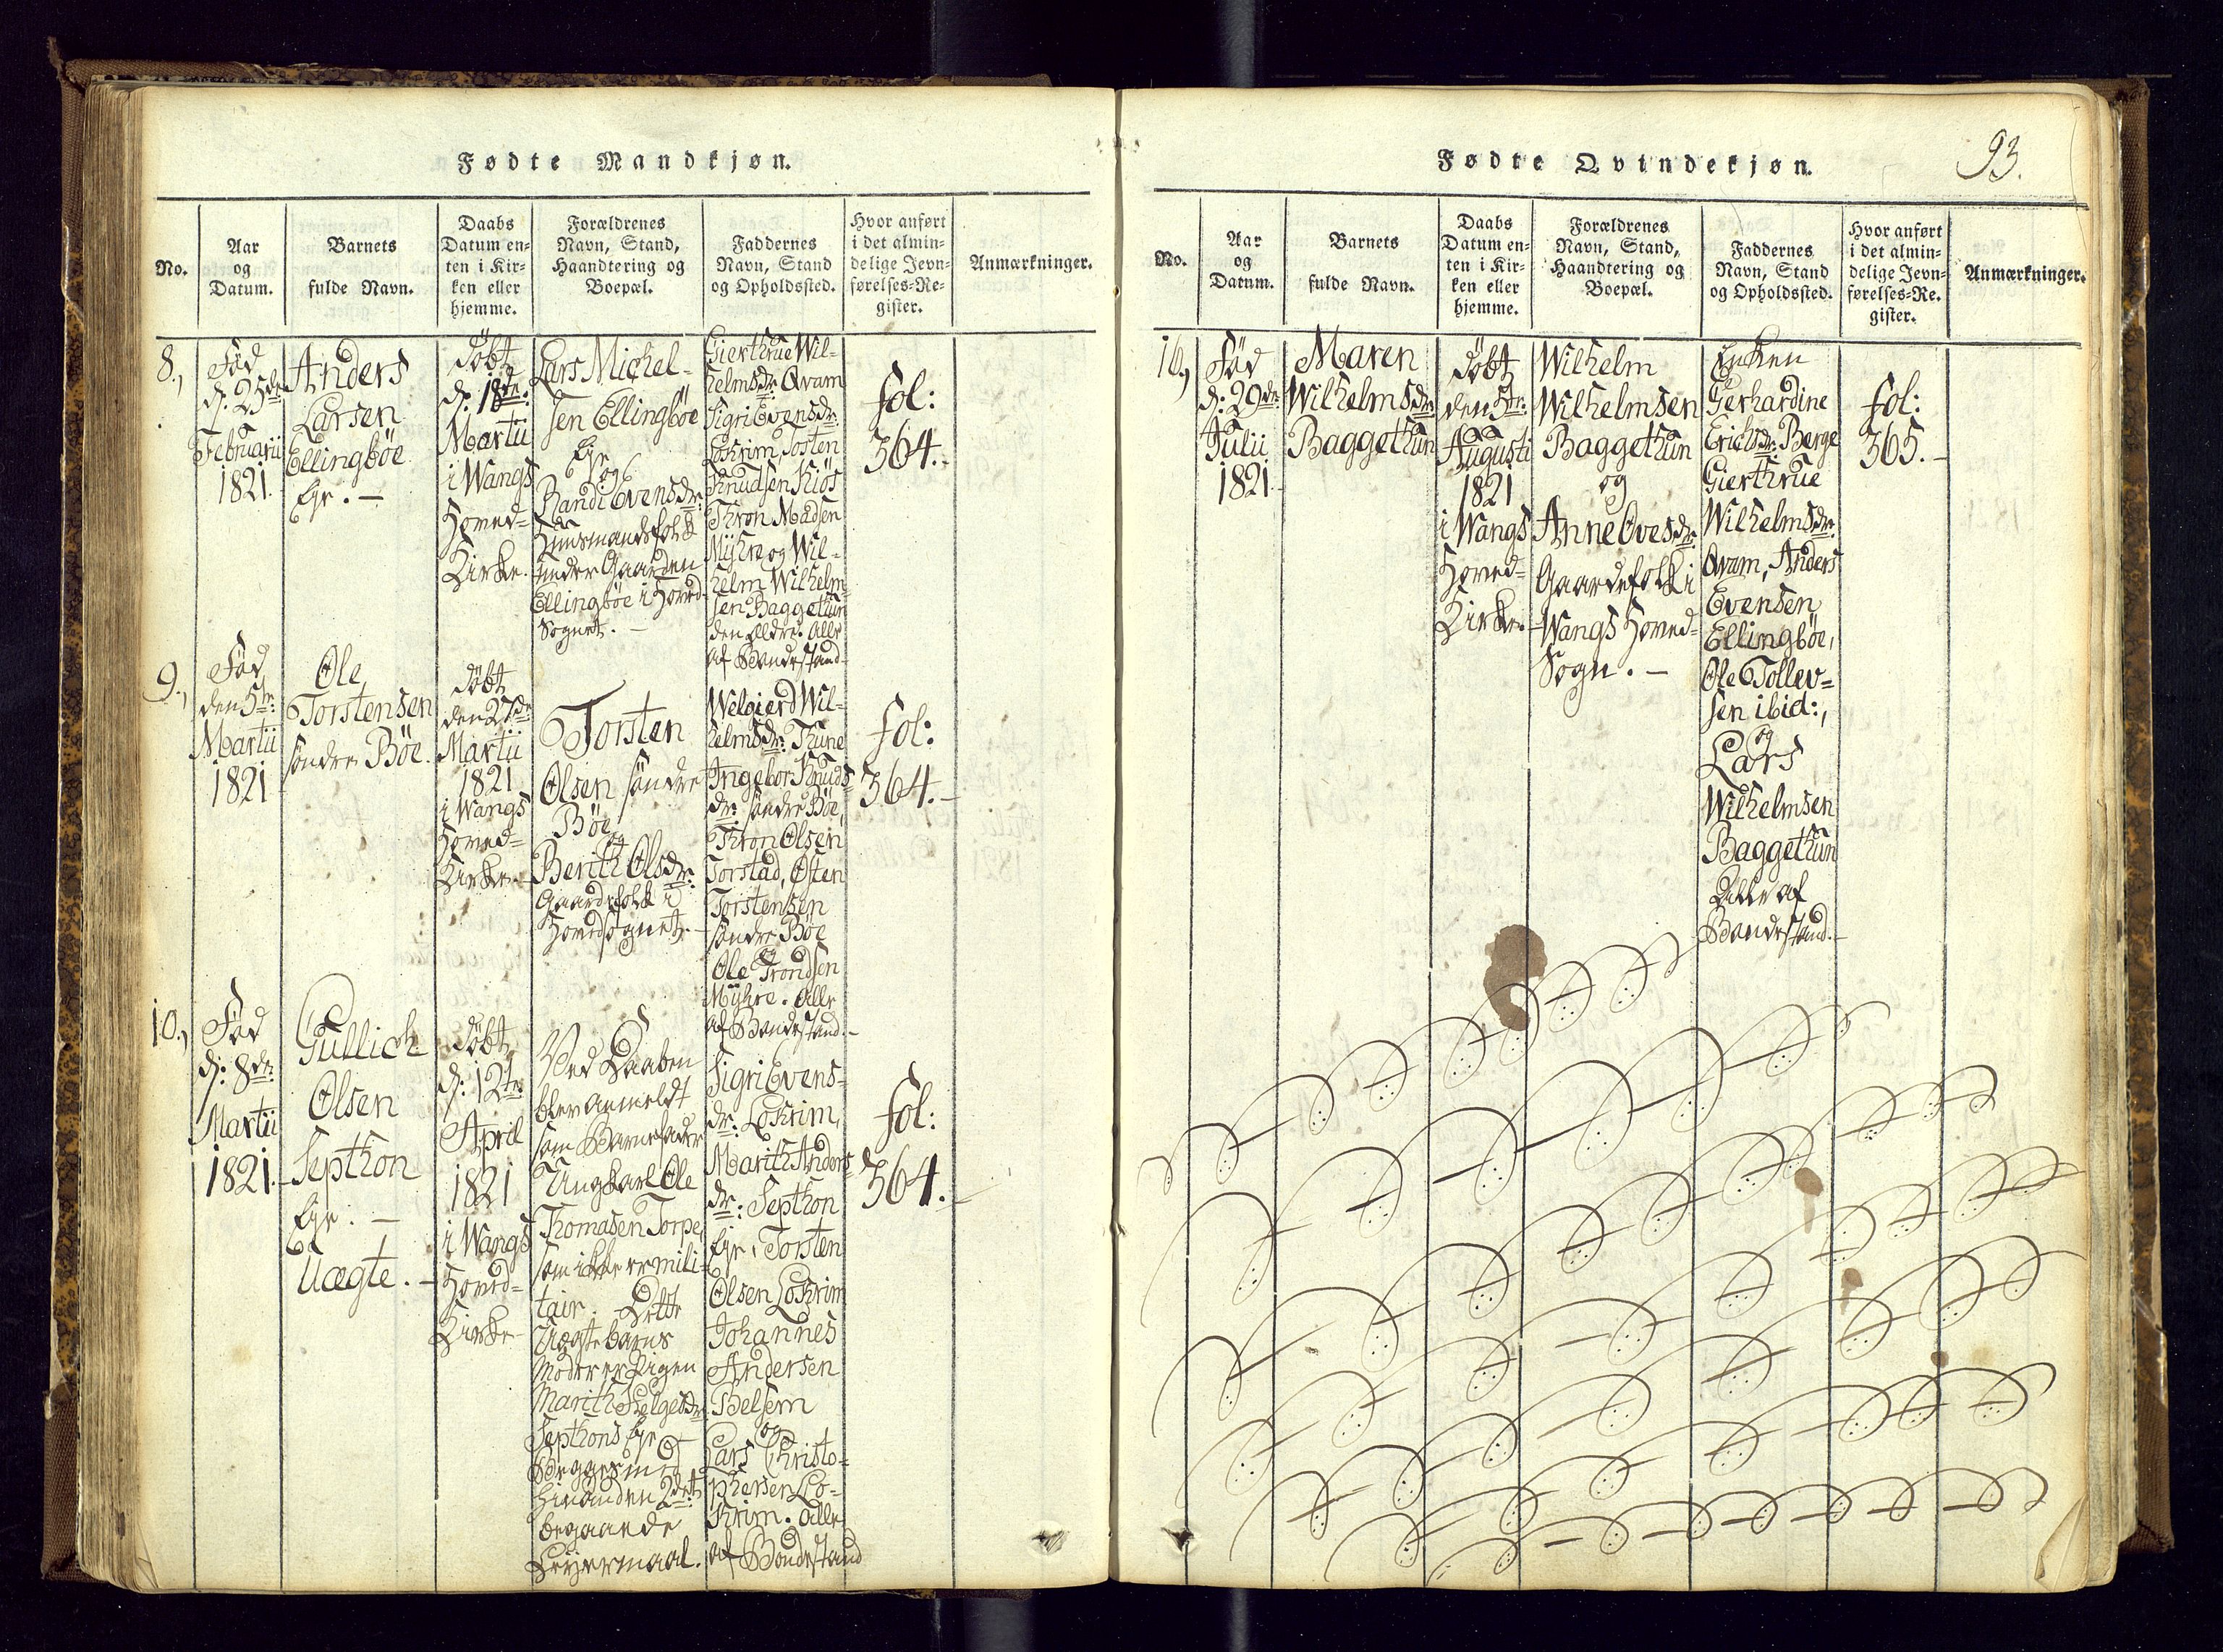 Fødte Mandkjøn.
No.
Aar
og
Datum.
Barnets
fulde Navn.
Daabs
Datum en-
ten i Kir-
ken eller
hjemme.
Forældrenes
Navn, Stand,
Haandtering og
Boepæl.
Faddernes
Navn, Stand
og Opholdssted.
Hvor anført
i det almin-
delige Jevn-
førelses-Re-
gister.
Anmærkninger.
8.,
Fød
d: 25de
Februarii
1821.
Anders
Larsen
Ellingbøe
Eje. —
Döbt
d: 18de:
Martii
i Wangs
Hoved=
Kirke.
Lars Michel-
sen Ellingböe
Eje
og
Randi Evensdr:
Huusmandsfolk
under Gaarden
Ellingböe i Hoved-
Sognet. —
Gierthrue Wil-
helmsdr: Qvam
Sigri Evensdr:
Lohrim, Tosten
Knudsen Kiös
Thron Madsen
Myhre og Wil-
helm Wilhelm-
sen Baggethun
den Ældre. Alle
af Bondestand
fol:
364.-
9.,
Fød
den 5te:
Martii
1821
Ole
Torstensen
söndre Böe.
Döbt
den 27de
Martii
1821
i Wangs
Hoved=
Kirke.-
Torsten
Olsen söndre
Böe
og
Berith Olsdr:
Gaardefolk i
Hovedsognet.-
Welgierd Wil-
helmsdr: Thune
Ingebor Knuds-
dr: söndre Böe,
Thron Olsen
Torstad, Østen
Torstensen
söndre Böe
og
Ole Trondsen
Myhre. Alle
af Bondestand.-
fol:
364.-
10.,
Fød
d: 8de
Martii
1821.-
Gullich
Olsen
Septhon
Eje. —
Uægte. -
Döbt
d: 12te
April
1821
i Wangs
Hoved=
Kirke-
Ved Daaben
blev anmeldt
som Barnefader
Ungkarl Ole
Thomasen Torpe,
som ikke er mili-
tair. Dette
Uægte barns
Moder er Pigen
Marith Helgesdr
Septhons Eje
Begges med
hinanden 2det
begaaede
Leyermaal.
Sigri Evens-
dr: Lohrim,
Marith Anders-
dr: Septhon
Eje, Torsten
Olsen Lohrim
Johannes
Andersen
Belsem
og
Lars Christo-
phersen Lo-
hrim. Alle
af Bondestand
fol:
364.-
Fødte Qvindekjøn.
93.
No.
Aar
og
Datum.
Barnets
fulde Navn.
Daabs
Datum en-
ten i Kir-
ken eller
hjemme.
Forældrenes
Navn, Stand,
Haandtering og
Boepæl.
Faddernes
Navn, Stand
og Opholdssted.
Hvor anført
i det almin-
delige Jevn-
førelses-Re-
gister.
Anmærkninger.
16.,
Fød
d: 29de
Julii
1821.
Maren
Wilhelmsdr:
Baggethun
Döbt
den 5te:
Augusti
1821
i Wangs
Hoved=
Kirke.-
Wilhelm
Wilhelmsen
Baggethun
og
Anne Ovesdr:
Gaardefolk i
Wangs Hoved=
Sogn. —
Enken
Gerhardine
Erichsdr: Berge
Gierthrue
Wilhelmsdr:
Qvam, Anders
Evensen
Ellingböe,
Ole Tollev=
sen ibid:,
og
Lars
Wilhelmsen
Baggethun
Alle af
Bondestand.-
fol:
365.-